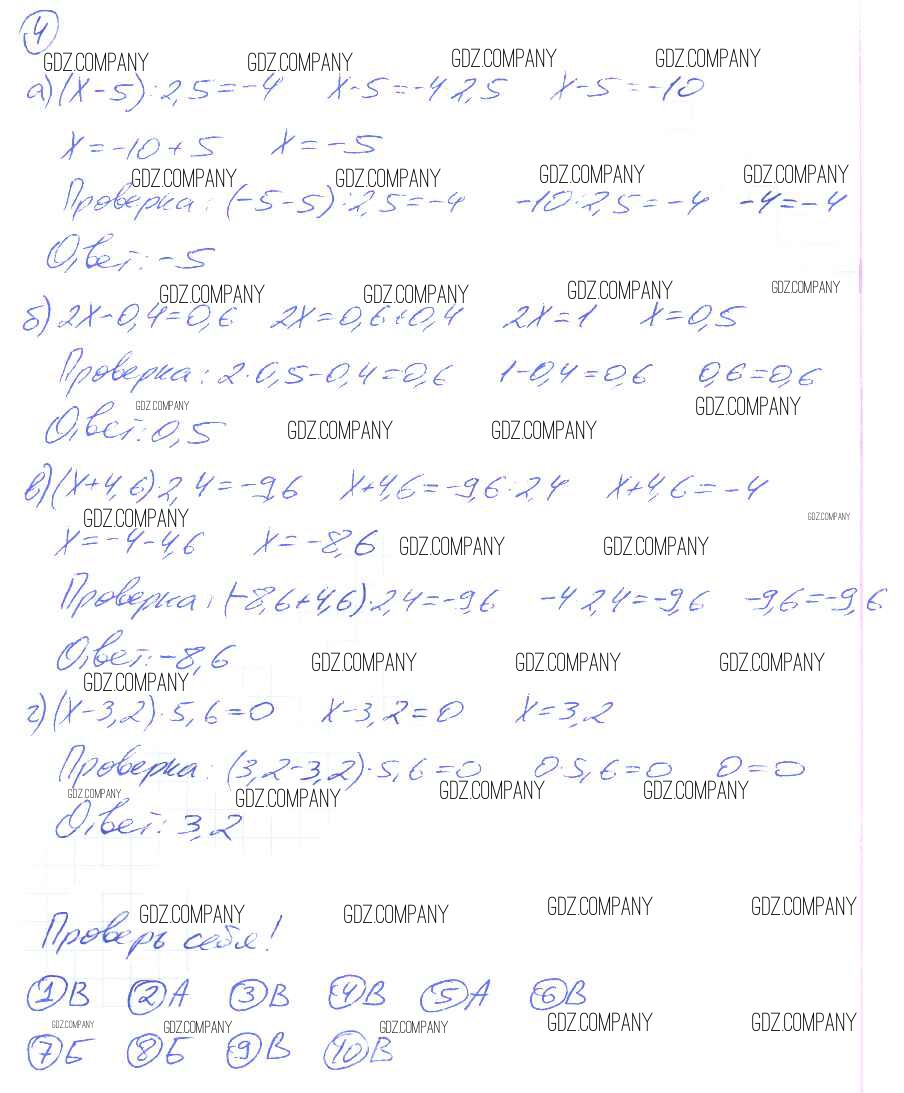 4
GDZ.COMPANY GDZ.COMPANY GDZ.COMPANY GDZ.COMPANY
а) (x-5):2,5=-4 x-5=-4·2,5 x-5=-10
x=-10+5 x=-5
GDZ.COMPANY GDZ.COMPANY GDZ.COMPANY GDZ.COMPANY
Проверка: (-5-5):2,5=-4 -10:2,5=-4 -4=-4
Ответ: -5
GDZ.COMPANY GDZ.COMPANY GDZ.COMPANY GDZ.COMPANY
б) 2x-0,4=0,6 2x=0,6+0,4 2x=1 x=0,5
Проверка: 2·0,5-0,4=0,6 1-0,4=0,6 0,6=0,6
GDZ.COMPANY GDZ.COMPANY
Ответ: 0,5 GDZ.COMPANY GDZ.COMPANY
в) (x+4,6)·2,4=-9,6 x+4,6=-9,6:2,4 x+4,6=-4
GDZ.COMPANY GDZ.COMPANY
x=-4-4,6 x=-8,6 GDZ.COMPANY GDZ.COMPANY
Проверка: (-8,6+4,6)·2,4=-9,6 -4·2,4=-9,6 -9,6=-9,6
Ответ: -8,6 GDZ.COMPANY GDZ.COMPANY GDZ.COMPANY
GDZ.COMPANY
г) (x-3,2)·5,6=0 x-3,2=0 x=3,2
Проверка: (3,2-3,2)·5,6=0 0·5,6=0 0=0
GDZ.COMPANY GDZ.COMPANY GDZ.COMPANY GDZ.COMPANY
Ответ: 3,2
GDZ.COMPANY GDZ.COMPANY GDZ.COMPANY GDZ.COMPANY
Проверь себя!
1 В 2 А 3 В 4 В 5 А 6 В
GDZ.COMPANY GDZ.COMPANY GDZ.COMPANY GDZ.COMPANY GDZ.COMPANY
7 Б 8 Б 9 В 10 В